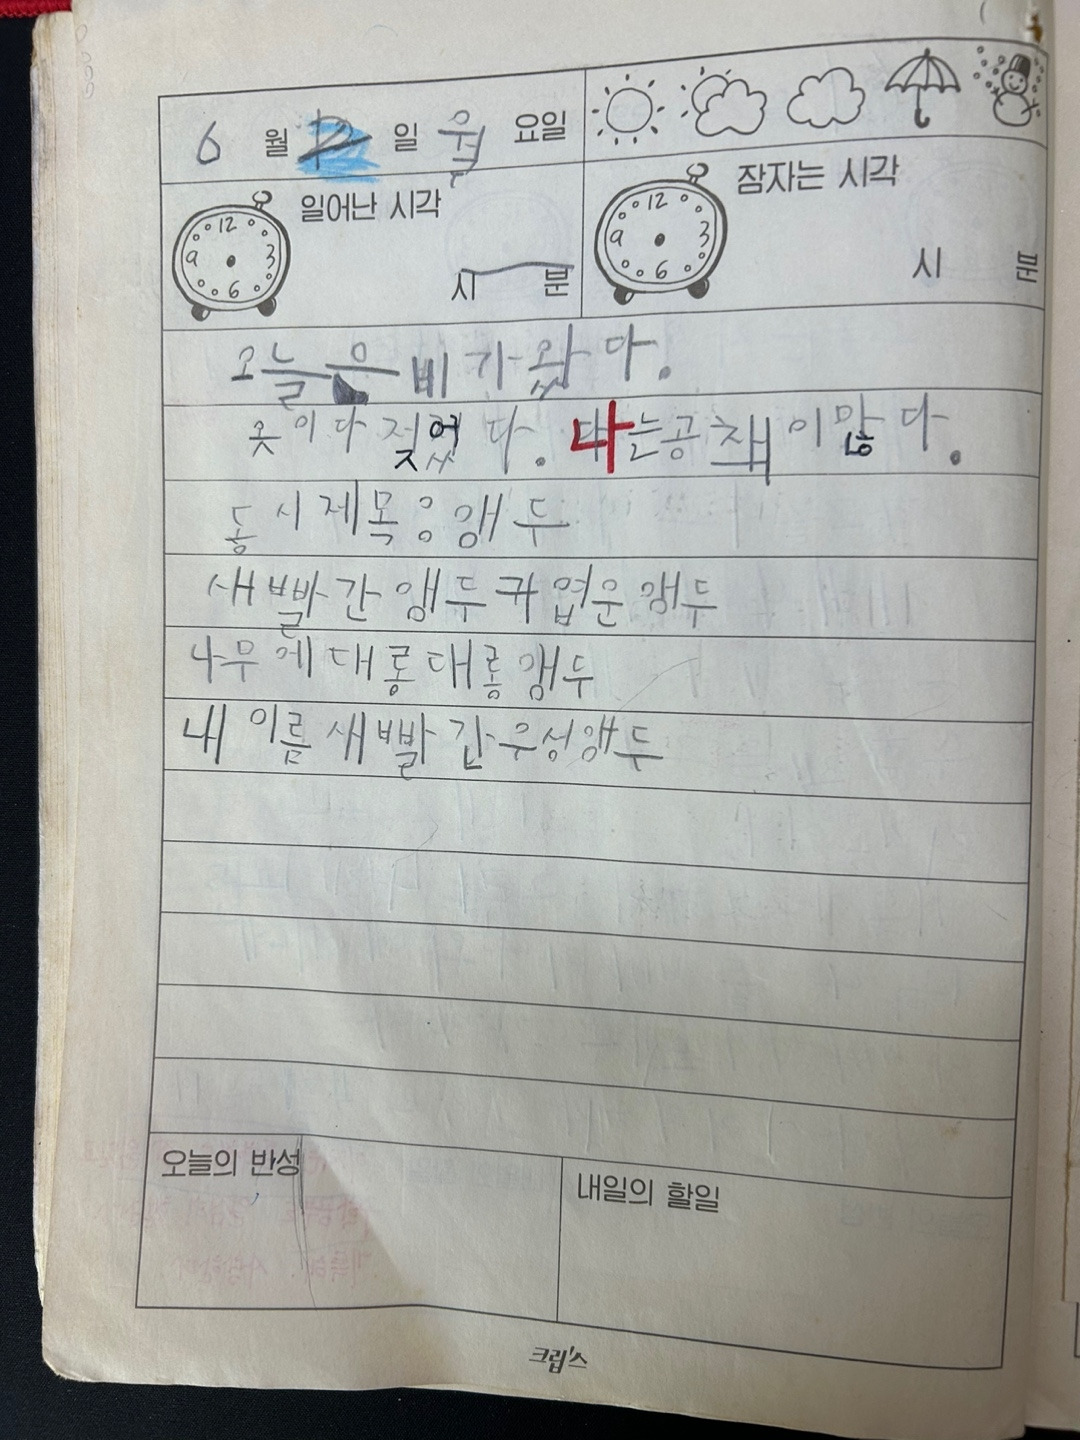 6 월 일 월 요일
일어난 시각
시 분
잠자는 시각
시 분
오늘은 비가 왔다.
옷이 다 젖었다. 나는 공책이 많다.
동시 제목 앵두
새빨간 앵두 귀엽운 앵두
나무에 대롱대롱 앵두
내 이름 새빨간 우성앵두
오늘의 반성
내일의 할일
크립스